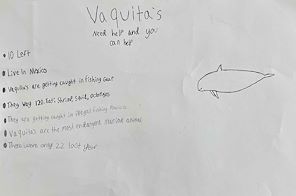 Vaquita's
need help and you
can help
• 10 Left
• Live in Mexico
• Vaquita's are getting caught in fishing Gear
• They Way 120, Eats Shrimp, squid, octopyes
• They are getting caught in illegal fishing
• Vaquita's are the most endangered marine animal
• There were only 22 last year